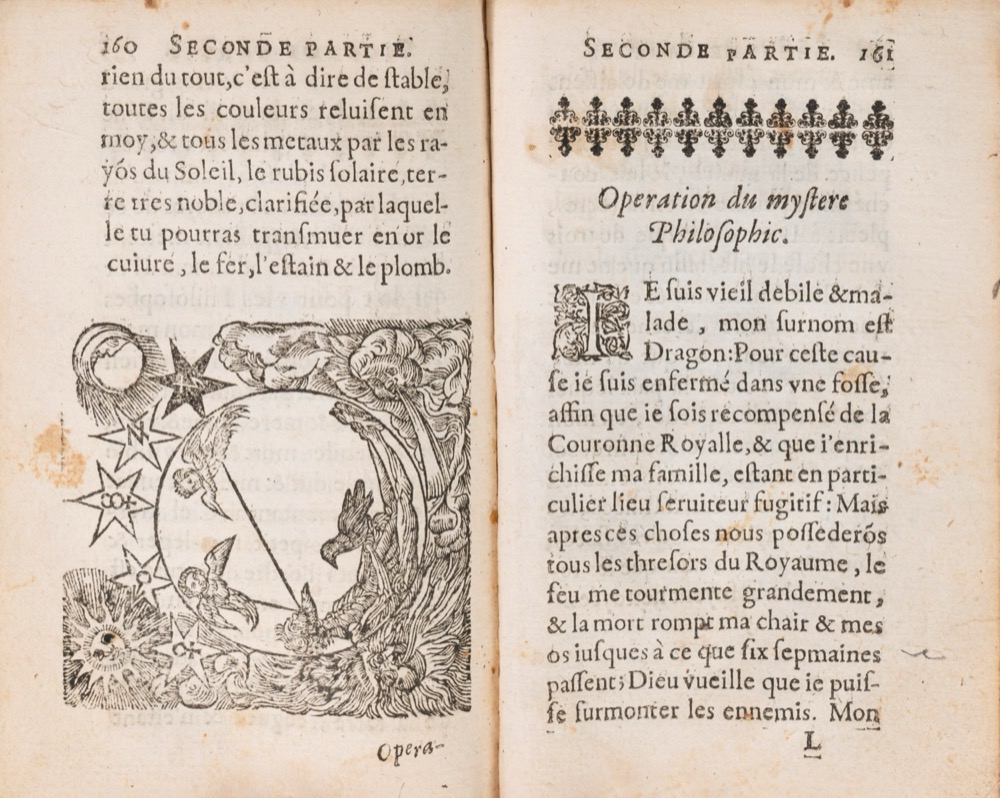 160 SECONDE PARTIE.
rien du tout,c'eſt à dire de ſtable,
toutes les couleurs reluiſent en
moy,& tous les metaux par les ra-
yõs du Soleil, le rubis ſolaire,ter-
re tres noble,clarifiée,par laquel-
le tu pourras tranſmuer en or le
cuiure , le fer,l'eſtain & le plomb.
Opera-
SECONDE PARTIE. 161
Operation du myſtere
Philoſophic.
IE ſuis vieil debile &ma-
lade , mon ſurnom eſt
Dragon:Pour ceſte cau-
ſe ie ſuis enfermé dans vne foſſe,
affin que ie ſois recompenſé de la
Couronne Royalle,& que i'enri-
chiſſe ma famille, eſtant en parti-
culier lieu ſeruiteur fugitif : Mais
apres ces choſes nous poſſederõs
tous les threſors du Royaume , le
feu me tourmente grandement ,
& la mort rompt ma chair & mes
os iuſques à ce que ſix ſepmaines
paſſent; Dieu vueille que ie puiſ-
ſe ſurmonter les ennemis. Mon
L